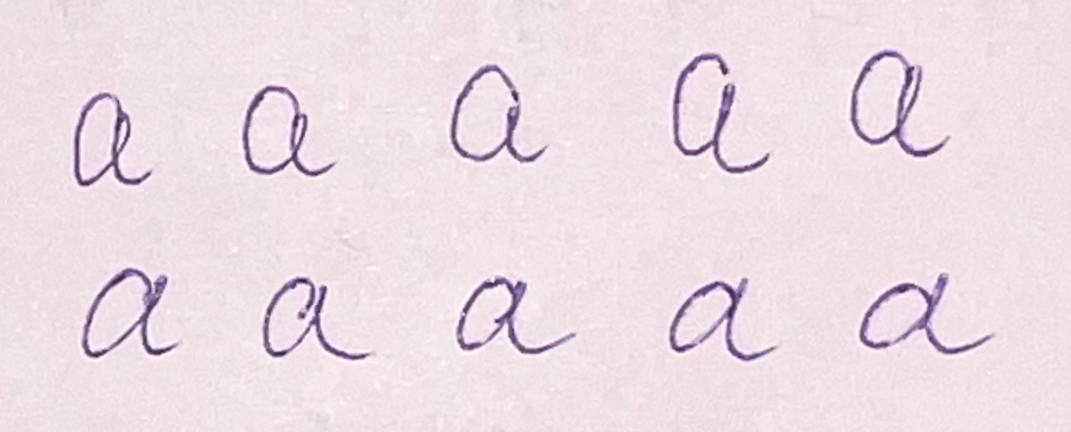 a a a a a
a a a a a